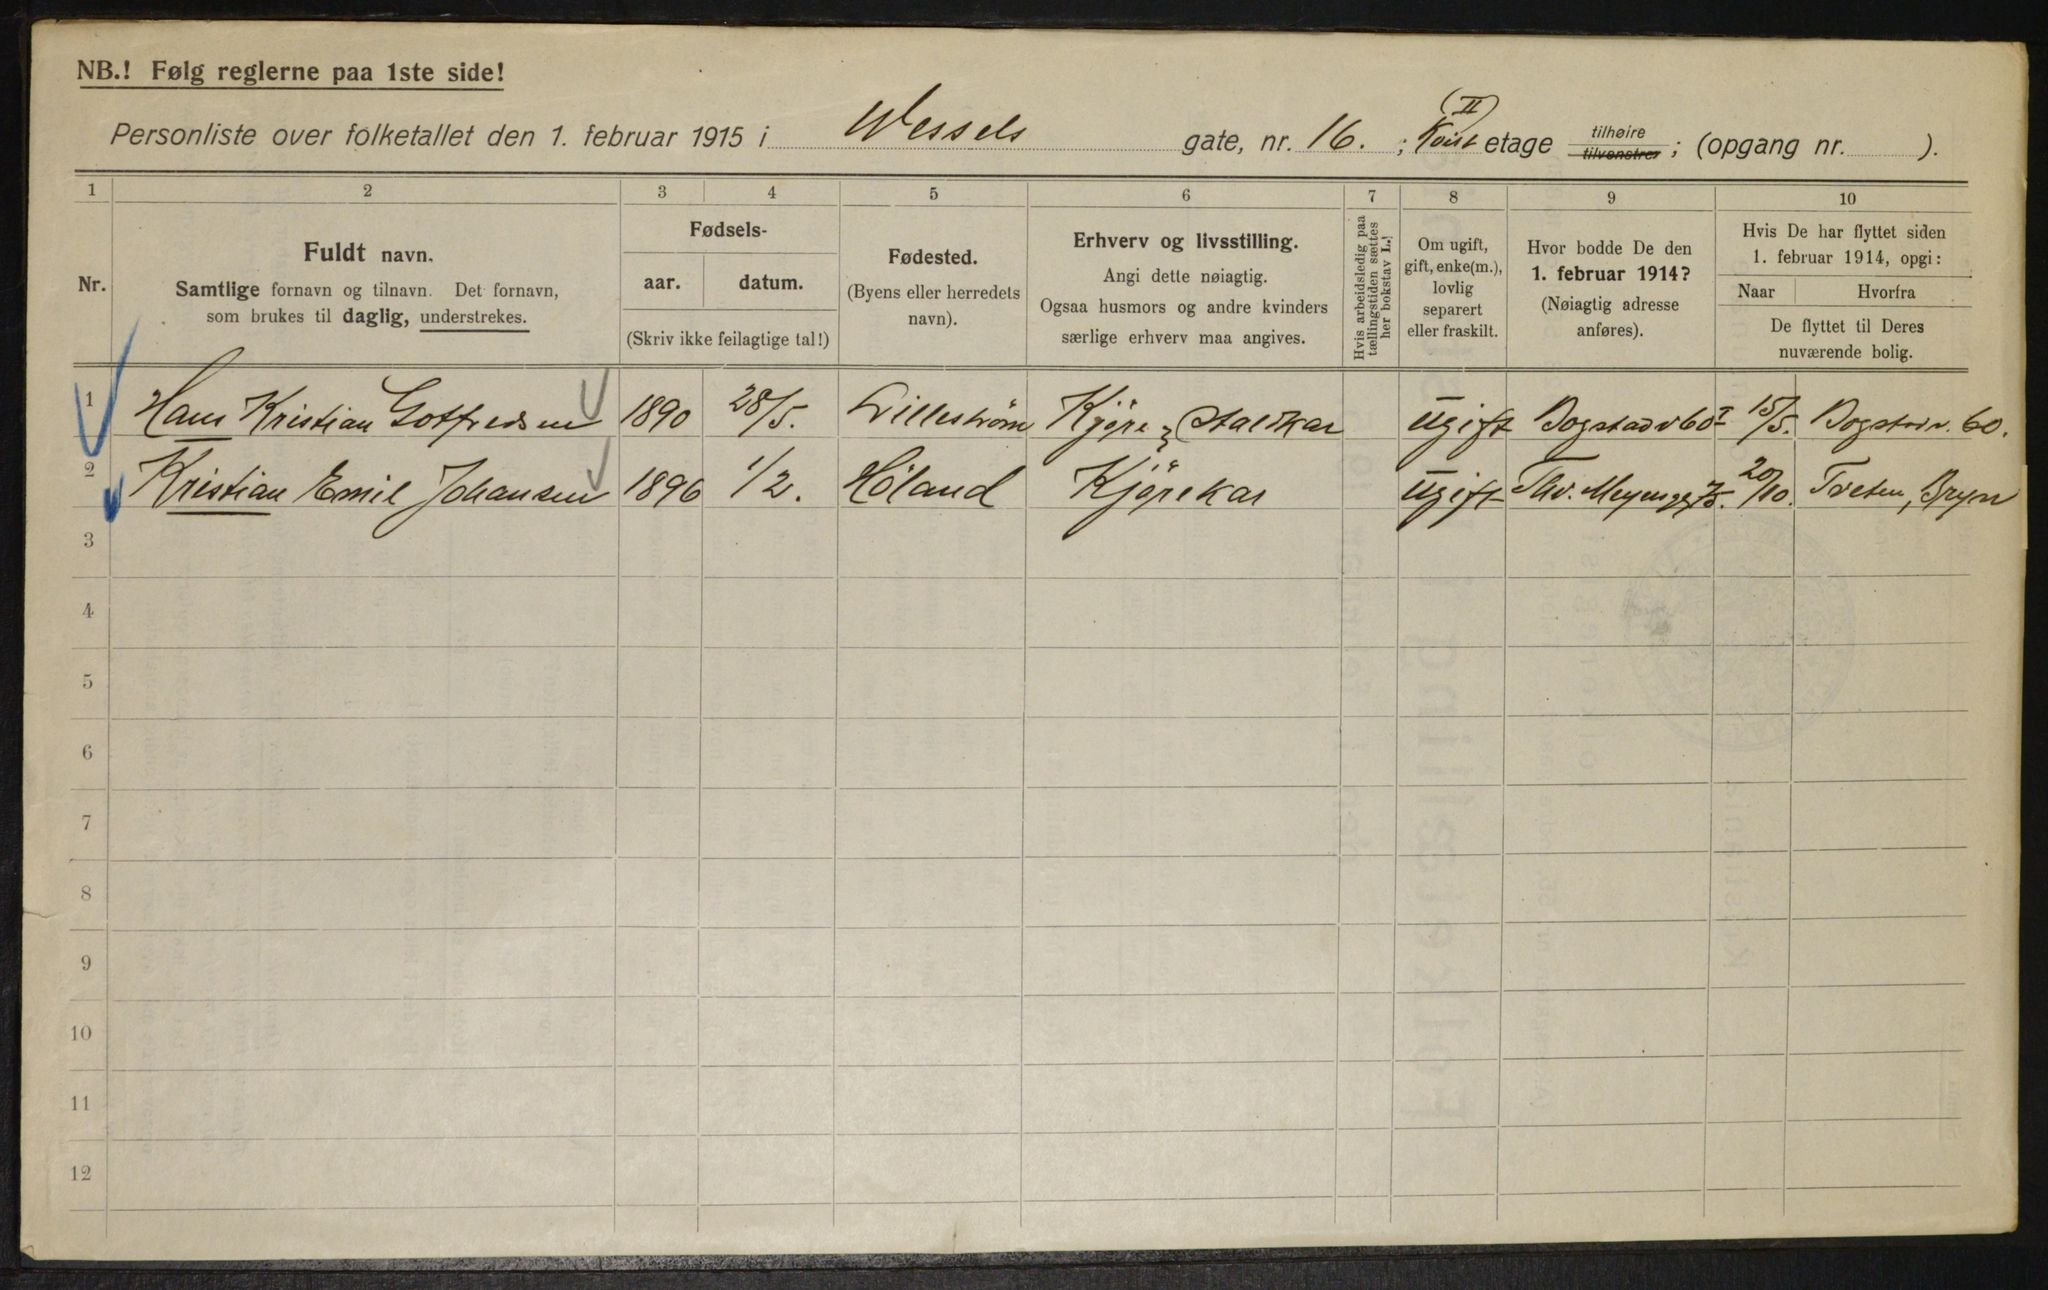 NB.! Følg reglerne paa 1ste side!
(II)
Personliste over folketallet den 1. februar 1915 i Wessels gate, nr. 16. ; Kvist etage tilhøire tilvenstre ; (opgang nr. ).
1 2 3 4 5 6 7 8 9 10
Nr.
Fuldt navn.
Samtlige fornavn og tilnavn. Det fornavn,
som brukes til daglig, understrekes.
Fødsels-
aar. datum.
(Skriv ikke feilagtige tal!)
Fødested.
(Byens eller herredets
navn).
Erhverv og livsstilling.
Angi dette nøiagtig.
Ogsaa husmors og andre kvinders
særlige erhverv maa angives.
Hvis arbeidsledig paa
tællingstiden sættes
her bokstav L.!
Om ugift,
gift, enke(m.),
lovlig
separert
eller fraskilt.
Hvor bodde De den
1. februar 1914?
(Nøiagtig adresse
anføres).
Hvis De har flyttet siden
1. februar 1914, opgi:
Naar Hvorfra
De flyttet til Deres
nuværende bolig.
1 Hans Kristian Gotfredsen 1890 28/5. Lillestrøm Kjøre & Staldkar Ugift Bogstadv 60 I 15/5. Bogstadv. 60.
2 Kristian Emil Johansen 1896 1/2. Høland Kjørekar Ugift Thv. Meyersg 75. 20/10. Tveten, Bryn
3
4
5
6
7
8
9
10
11
12